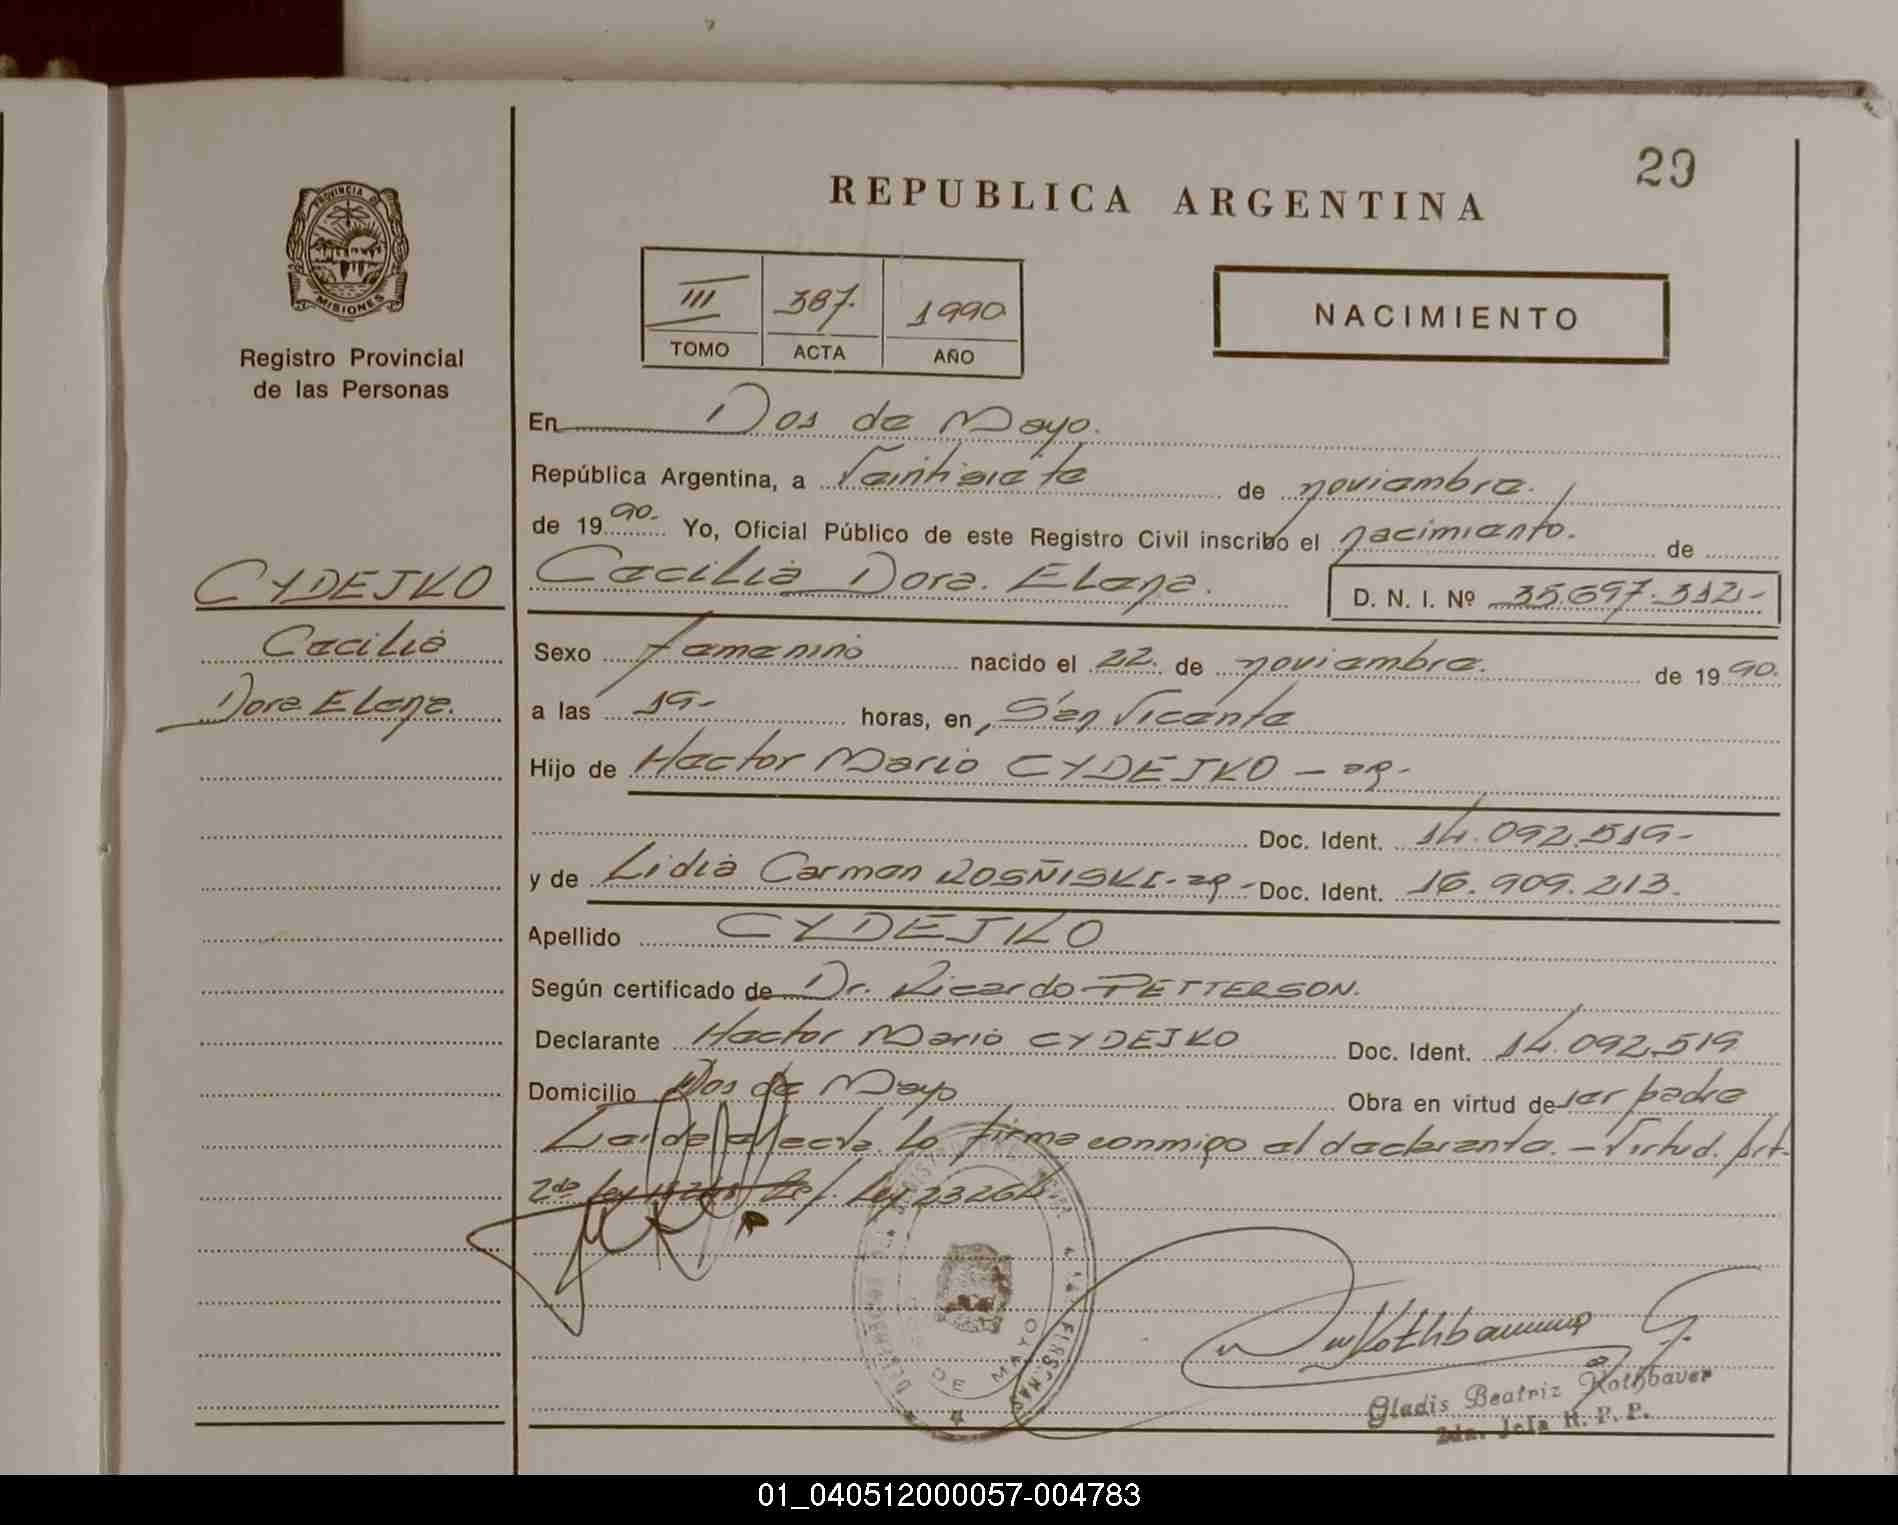 29
REPUBLICA ARGENTINA
PROVINCIA DE
MISIONES
Registro Provincial
de las Personas
III 387. 1990
TOMO ACTA AÑO
NACIMIENTO
En Dos de Mayo.
República Argentina, a Veintisiete de noviembre.
de 1990.- Yo, Oficial Público de este Registro Civil inscribo el nacimiento. de
CYDEJKO
Cecilia
Dora Elena.
Cecilia Dora. Elena. D. N. I. Nº 35.697.312.-
Sexo femenino nacido el 22. de noviembre. de 1990.
a las 19.- horas, en San Vicente
Hijo de Hector Mario CYDEJKO - ar.-
Doc. Ident. 14.092.519-
y de Lidia Carmen ROSÑISKI- ar - Doc. Ident. 16.909.213.
Apellido CYDEJKO
Según certificado de Dr. Ricardo PETTERSON.
Declarante Hector Mario CYDEJKO Doc. Ident. 14.092.519
Domicilio Dos de Mayo Obra en virtud de ser padre
Leida el acta. Lo firma conmigo el declarante. - Virtud. Art-
2do Ley 23264
DE MAYO
Gladis Beatriz Rothbauer
2da. Jefa R. P. P.
01_040512000057-004783